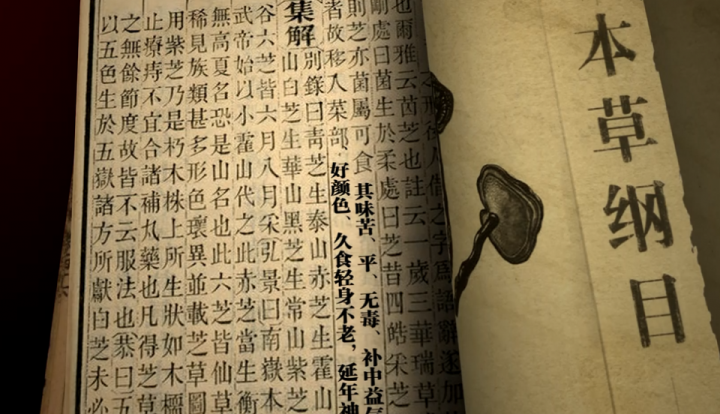 本草纲目
也爾雅云茵芝也註云一歲三華瑞草
剛處曰菌生於柔處曰芝昔四皓采芝
則芝亦菌屬可食
其味苦、平、无毒、补中益气
者故移入菜部
好颜色、久食轻身不老,延年神
集解別錄曰青芝生泰山赤芝生霍山
山白芝生華山黑芝生常山紫芝生
谷六芝皆六月八月采弘景曰南嶽本
武帝始以小霍山代之此赤芝當生衡
無高夏名恐是山名也此六芝皆仙草
稀見族類甚多形色瓌異並載芝草圖
用紫芝乃是朽木株上所生狀如木檽
止療痔不宜合諸補丸藥也凡得芝草
之無餘節度故皆不云服法也恭曰五
以五色生於五嶽諸方所獻白芝未必